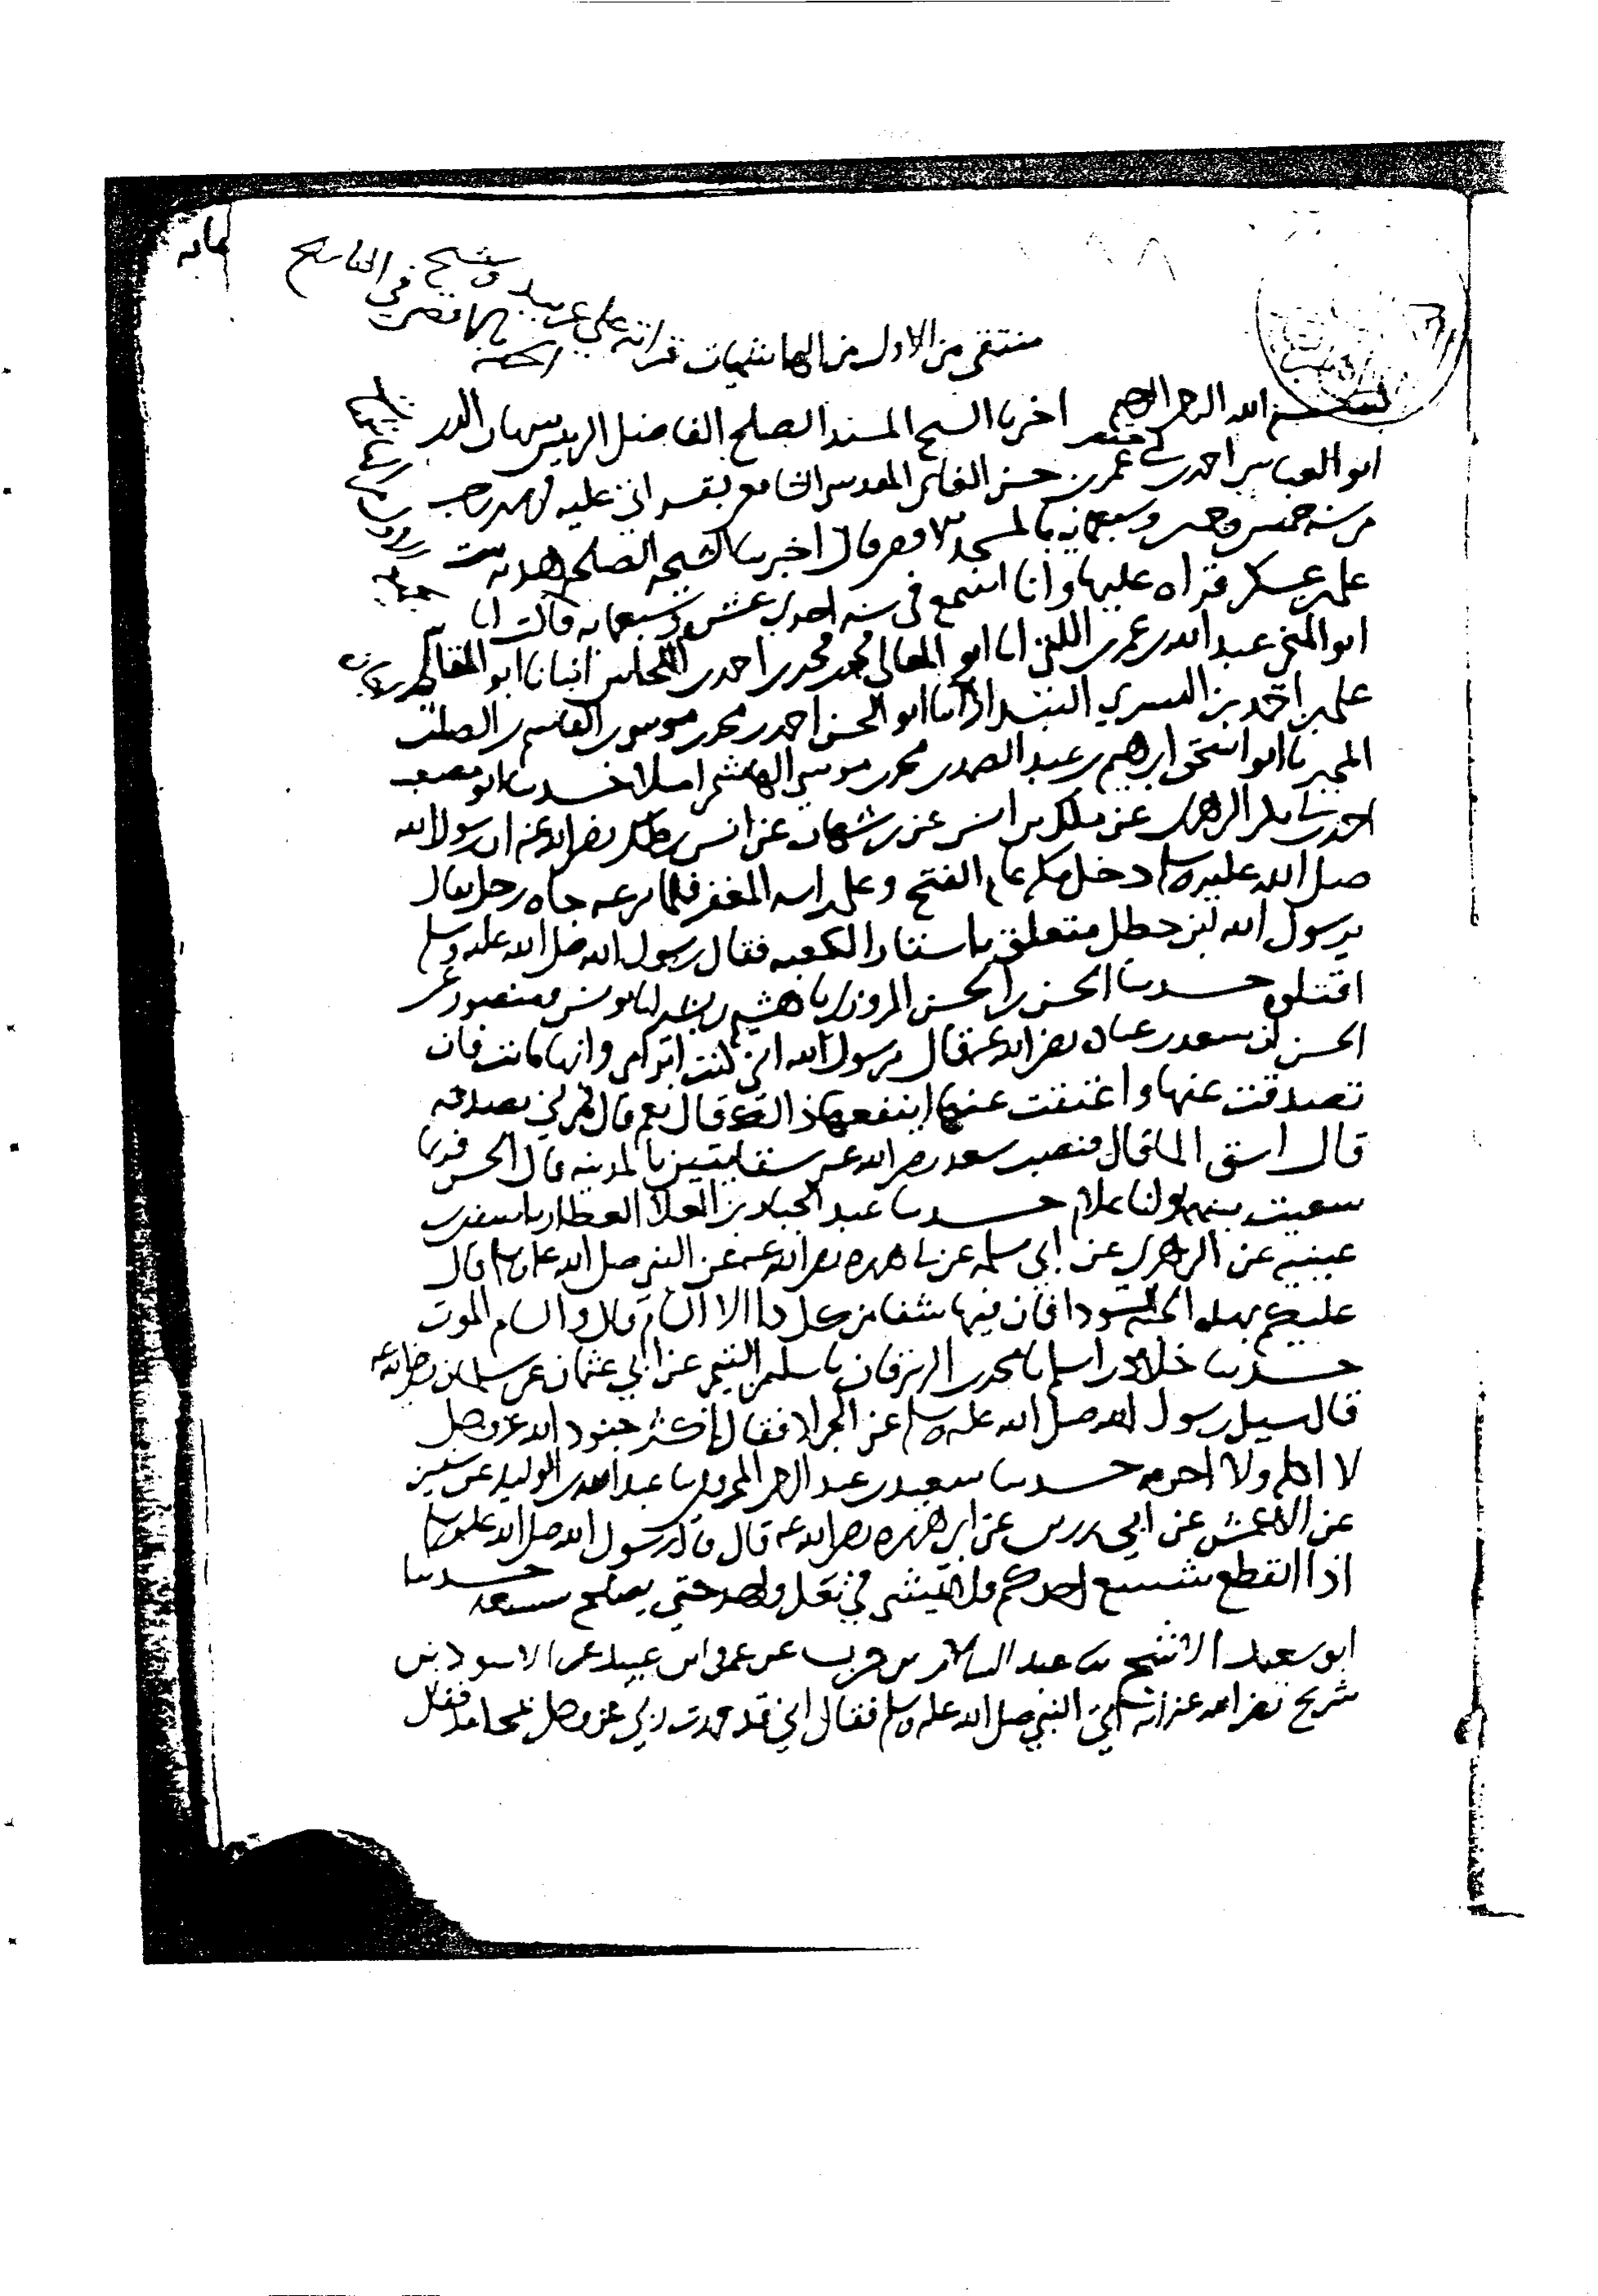 منتقى من الاول من الهاشميات قراته على
بسم الله الرحمن الرحيم اخبرنا الشيخ المسند الصلح الفاضل الرييس شهاب الدين
ابو العباس احمد بن عمر بن حسن المقدسي الشافعي بقراتي عليه في شهر رجب
من سنه خمس وخمسين وسبعمايه بالمسجد الاقصى قال اخبرتنا الشيخه الصلحه هديه بنت
علي بن عسكر قراه عليها وانا اسمع في سنه احدى عشر وسبعمايه قالت انا
ابو المنجى عبد الله بن عمر بن اللتي انا ابو المعالي محمد بن محمد بن احمد بن النحاس انبانا ابو القاسم
علي بن احمد بن البسري البندار انا ابو الحسن احمد بن محمد بن موسى بن القاسم بن الصلت
المجبر نا ابو اسحق ابرهيم بن عبد الصمد بن محمد بن موسى الهاشمي املا حدثنا ابو مصعب
احمد بن ابي بكر الزهري عن ملك بن انس عن بن شهاب عن انس بن ملك رضي الله عنه ان رسول الله
صلى الله عليه وسلم دخل مكه عام الفتح وعلى راسه المغفر فلما نزعه جاه رجل فقال
يرسول الله بن خطل متعلق باستار الكعبه فقال رسول الله صلى الله عليه وسلم
اقتلوه حدثنا الحسين بن الحسن المروزي نا هشيم بن بشير انا يونس ومنصور عن
الحسن ان سعد بن عباده رضي الله عنه قال يرسول الله اني كنت ابر امي وانها ماتت فان
تصدقت عنها واعتقت عنها اينفعها ذلك قال نعم قال فمرني بصدقه
قال اسق الما قال فنصب سعد رضي الله عنه سقايتين بالمدينه قال الحسن فربما
سعيت بينهما وانا غلام حدثنا عبد الجبار بن العلا العطار نا سفين بن
عيينه عن الزهري عن ابي سلمه عن ابي هريره رضي الله عنه عن النبي صلى الله عليه وسلم قال
عليكم بهذه الحبه السودا فان فيها شفا من كل دا الا السام قال والسام الموت
حدثنا خلاد بن اسلم نا محمد بن الزبرقان نا سليمن التيمي عن ابي عثمان عن سلمان رضي الله عنه
قال سيل رسول الله صلى الله عليه وسلم عن الجراد فقال اكثر جنود الله عز وجل
لا اكله ولا احرمه حدثنا سعيد بن عبد الرحمن المخزومي نا عبد الله بن الوليد عن سفين
عن الاعمش عن ابي رزين عن ابي هريره رضي الله عنه قال قال رسول الله صلى الله عليه وسلم
اذا انقطع شسع احدكم فلا يمشي في نعل واحد حتى يصلح شسعه حدثنا
ابو سعيد الاشج نا عبد السلام بن حرب عن عمرو بن عبيد عن الاسود بن
شريح رضي الله عنه انه اتى النبي صلى الله عليه وسلم فقال اني قد حمدت ربي عز وجل بمحامد فقال